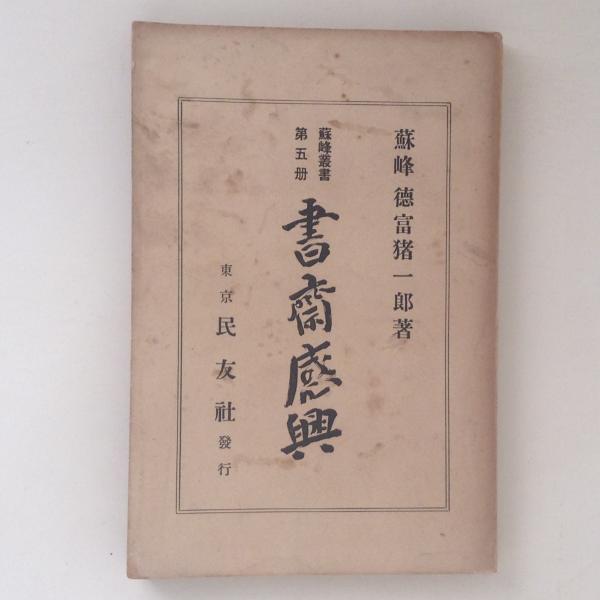 蘇峰 德富猪一郎著
蘇峰叢書
第五册
書齋感興
東京 民友社 發行